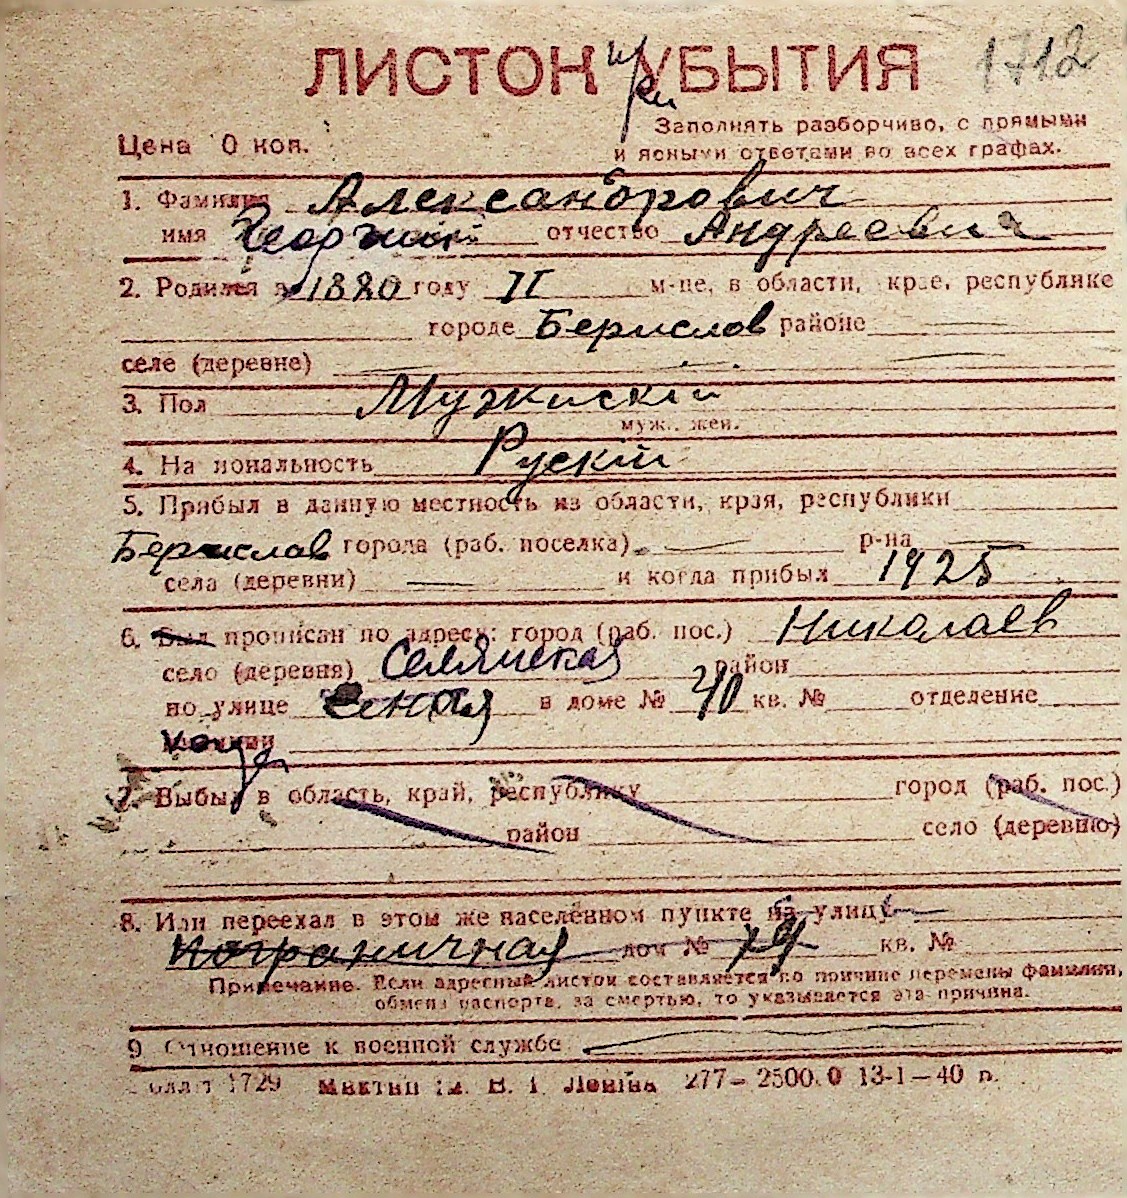 ЛИСТОК УБЫТИЯ 1712
Цена 0 коп.
Заполнять разборчиво, с прямыми
и ясными ответами во всех графах.
1. Фамилия Александрович
имя Георгий отчество Андреевич
2. Родился в 1880 году II м-це, в области, крае, республике
городе Берислов районе
селе (деревне)
3. Пол Мужиский
муж., жен.
4. Национальность Руский
5. Прибыл в данную местность из области, края, республики
Бериslав города (раб. поселка) р-на
села (деревни) и когда прибыл 1925
6. Был прописан по адресу: город (раб. пос.) Николаев
село (деревня) район
по улице в доме № 40 кв. № отделение
7. Выбыл в область, край, республику город (раб. пос.)
район село (деревню)
8. Или переехал в этом же населённом пункте на улицу
Пограничная дом № 79 кв. №
Примечание. Если адресный листок составляется по причине перемены фамилии,
обмена паспорта, за смертью, то указывается эта причина.
9 Отношение к военной службе
1729 В. І. Леніна 277–2500.0 13-1–40 р.